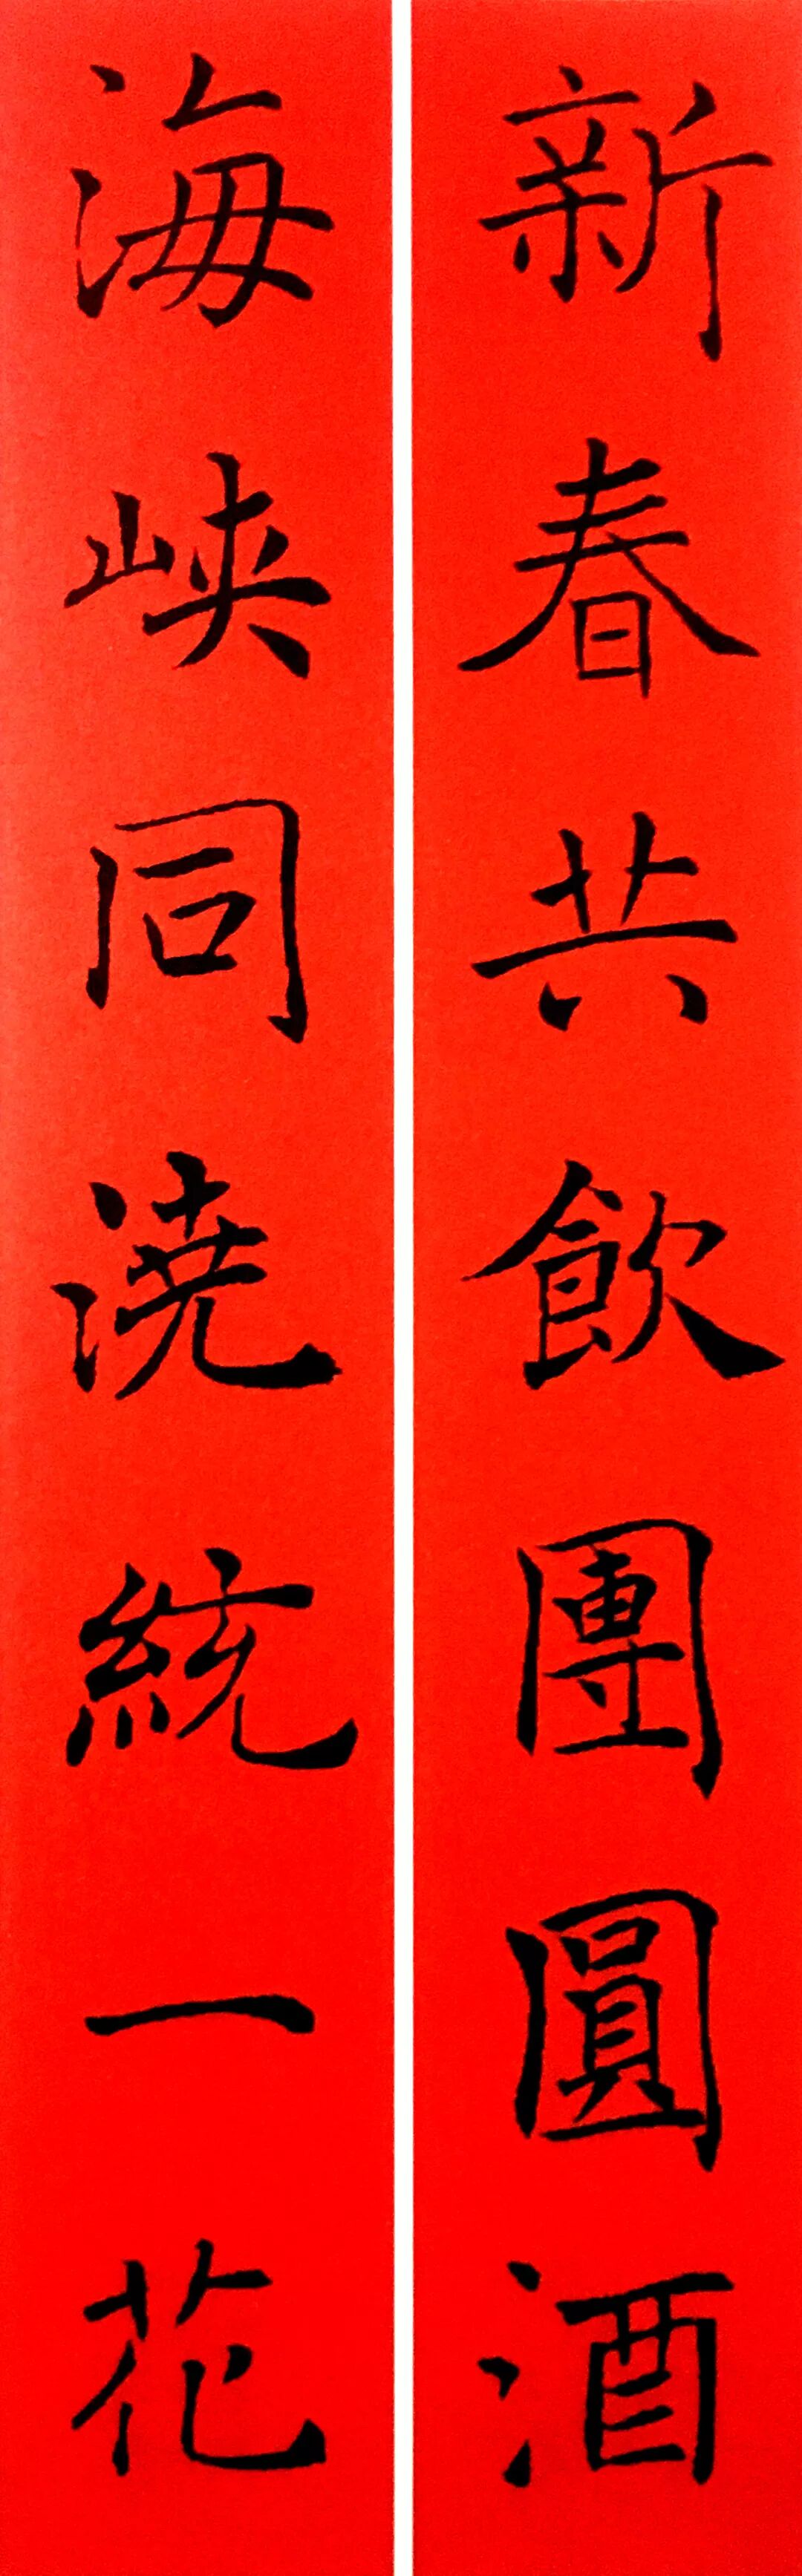 新春共飲團圓酒
海峽同澆統一花